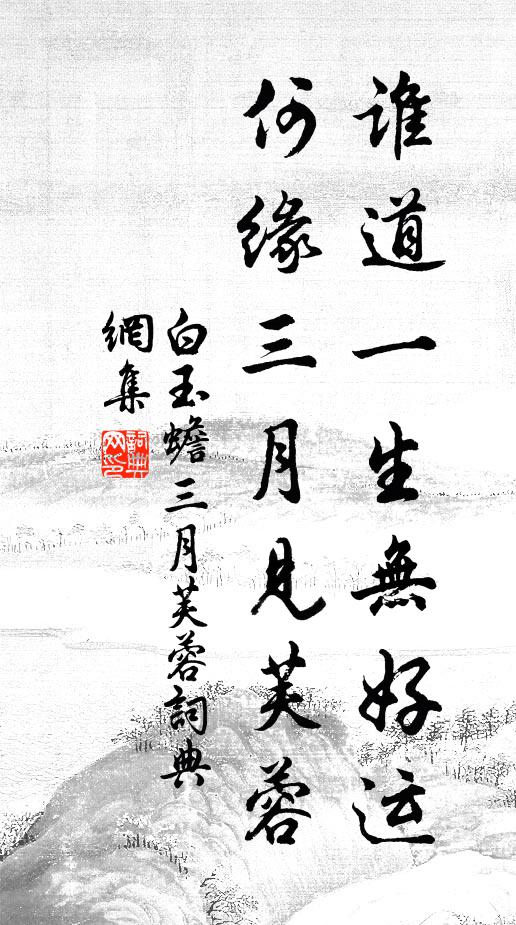 谁道一生無好运
何缘三月見芙蓉
白玉蟾三月芙蓉詞典
網集
詞典
网印